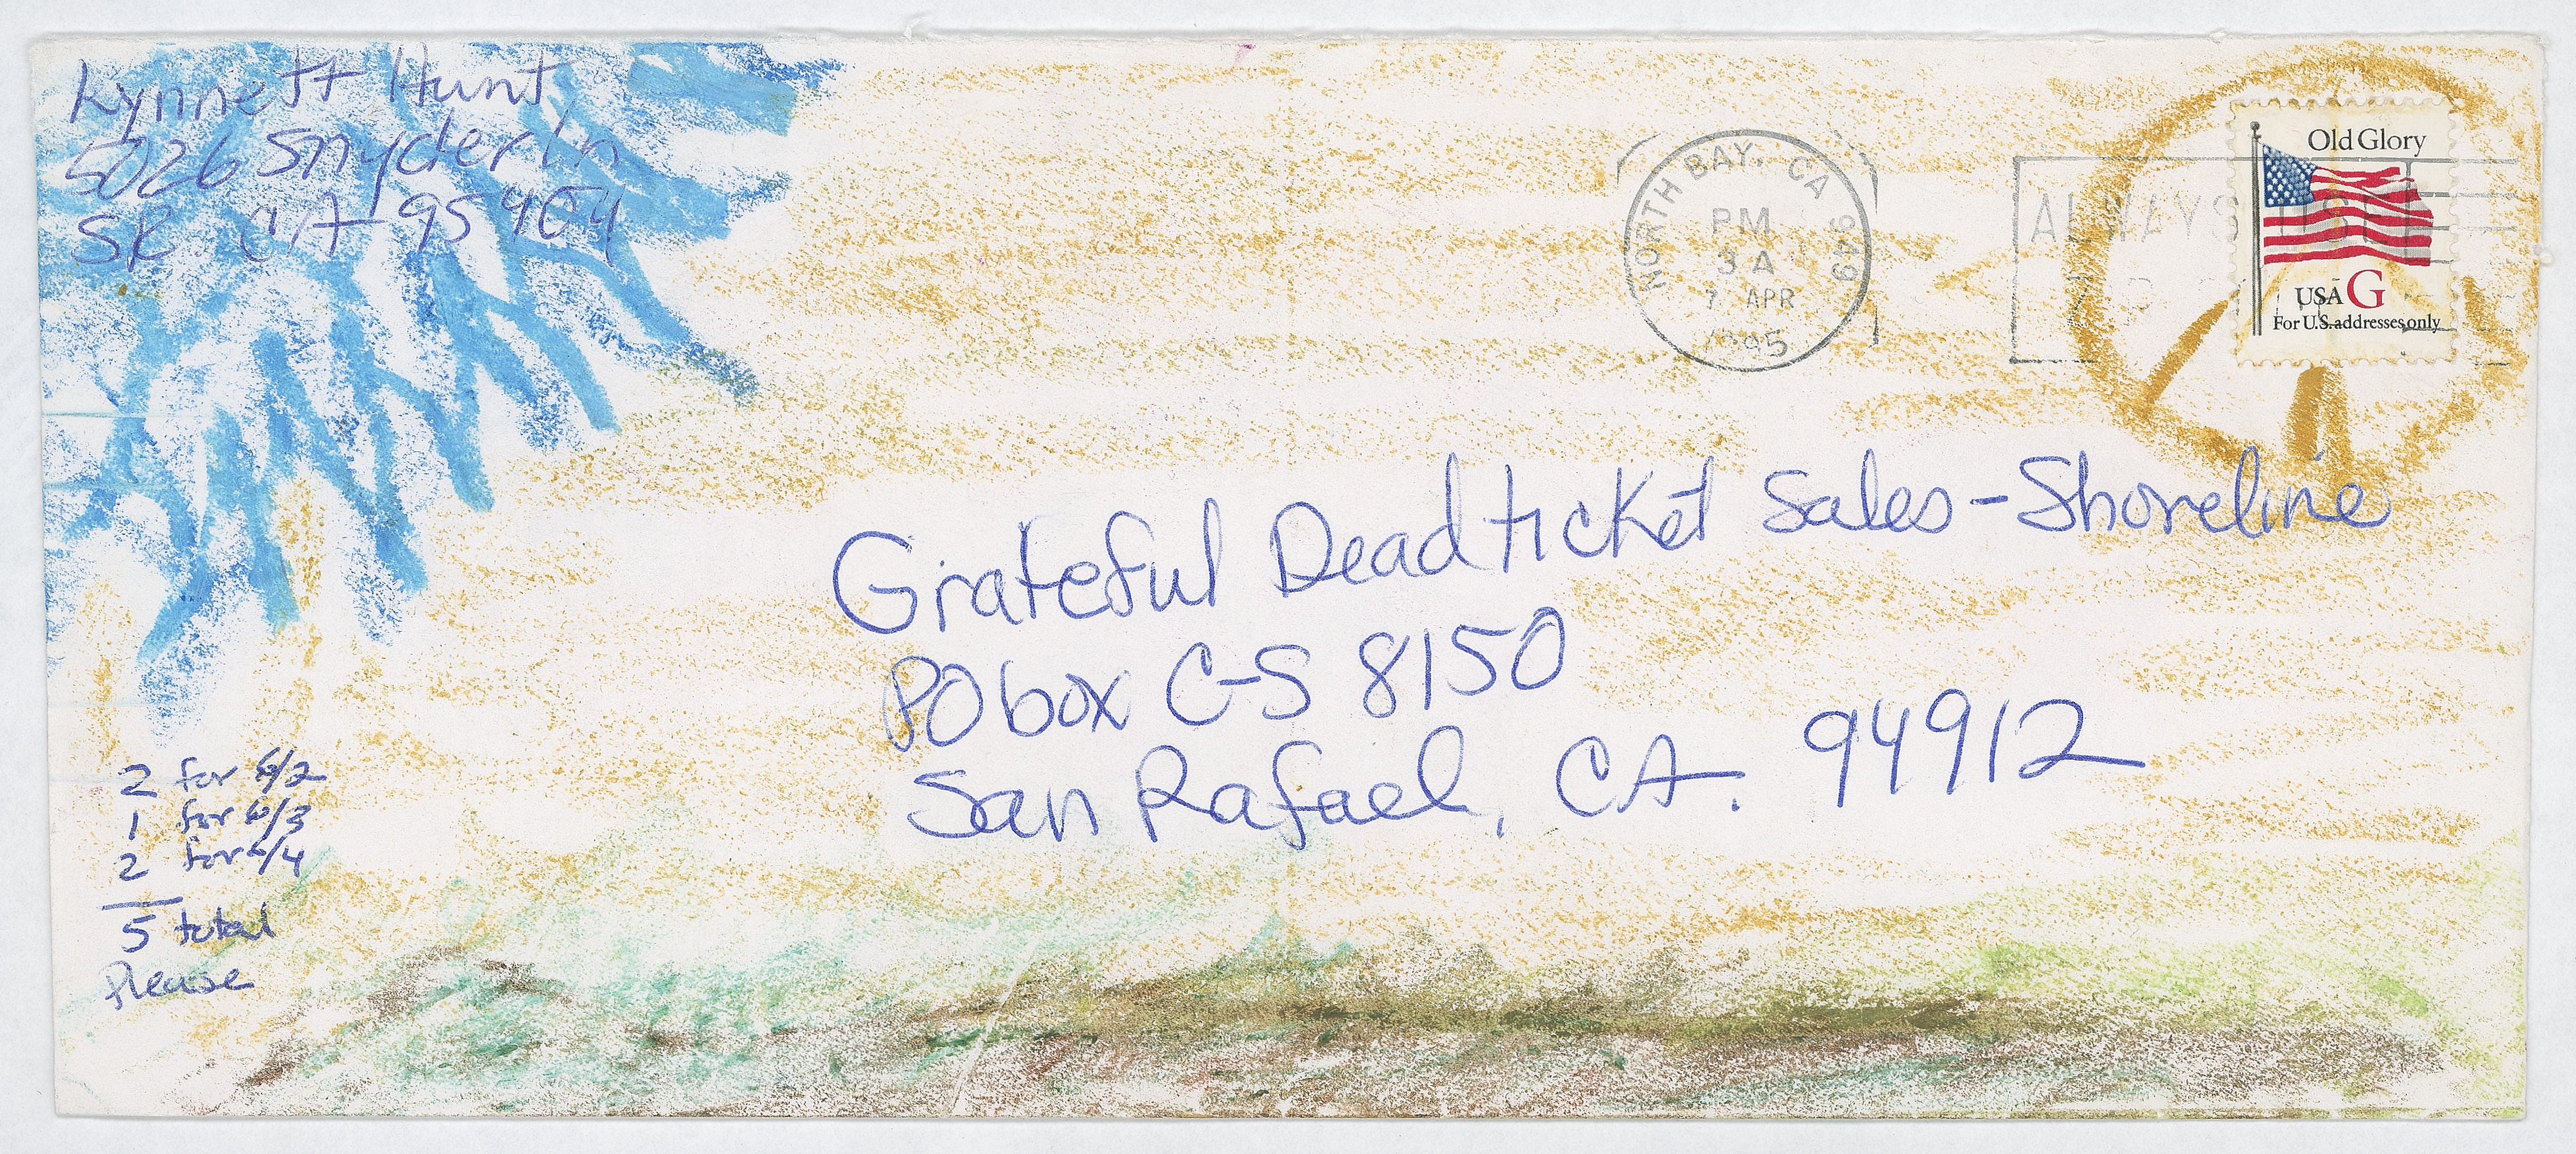 Lynnett Hunt
5026 Snyder Ln
SR CA 95404
NORTH BAY, CA 949
PM
3A
7 APR
1995
ALWAYS USE
Old Glory
USA G
For U.S. addresses only
Grateful Dead ticket Sales - Shoreline
PO box C-S 8150
San Rafael, CA. 94912
2 for 6/2
1 for 6/3
2 for 6/4
5 total
Please